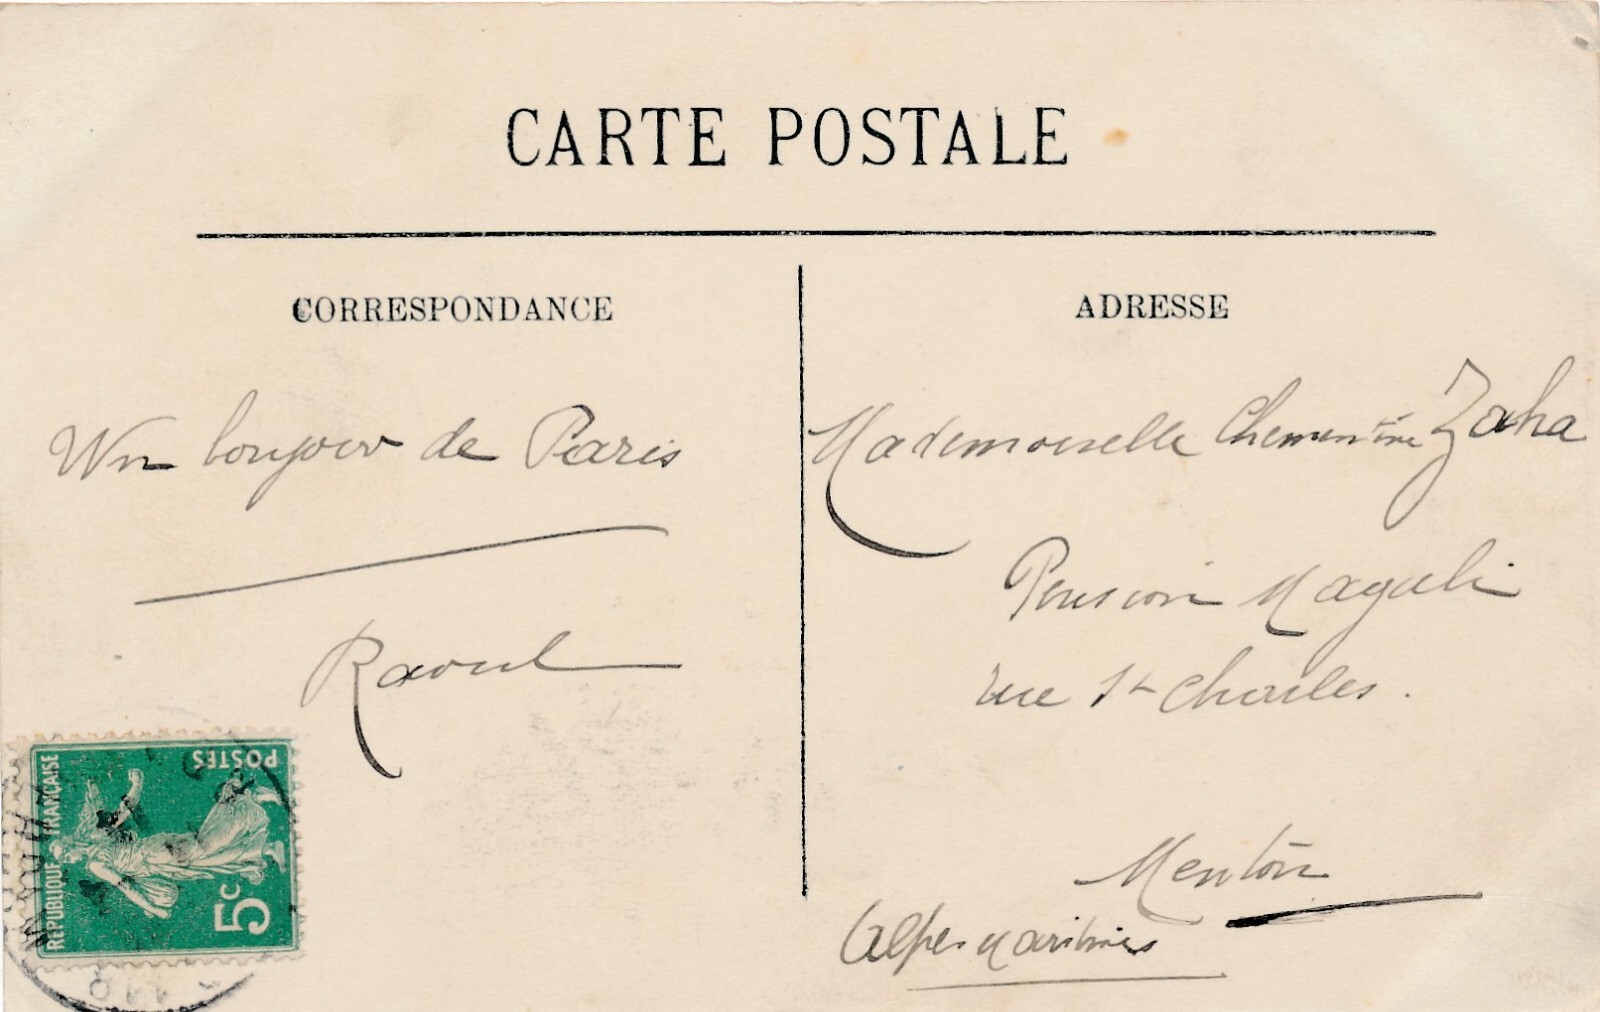 CARTE POSTALE
CORRESPONDANCE
Un bonjour de Paris
Raoul
ADRESSE
Mademoiselle Clementine Zaha
Pension Magali
rue St Charles.
Menton
Alpes Maritimes
POSTES
REPUBLIQUE FRANÇAISE
5c